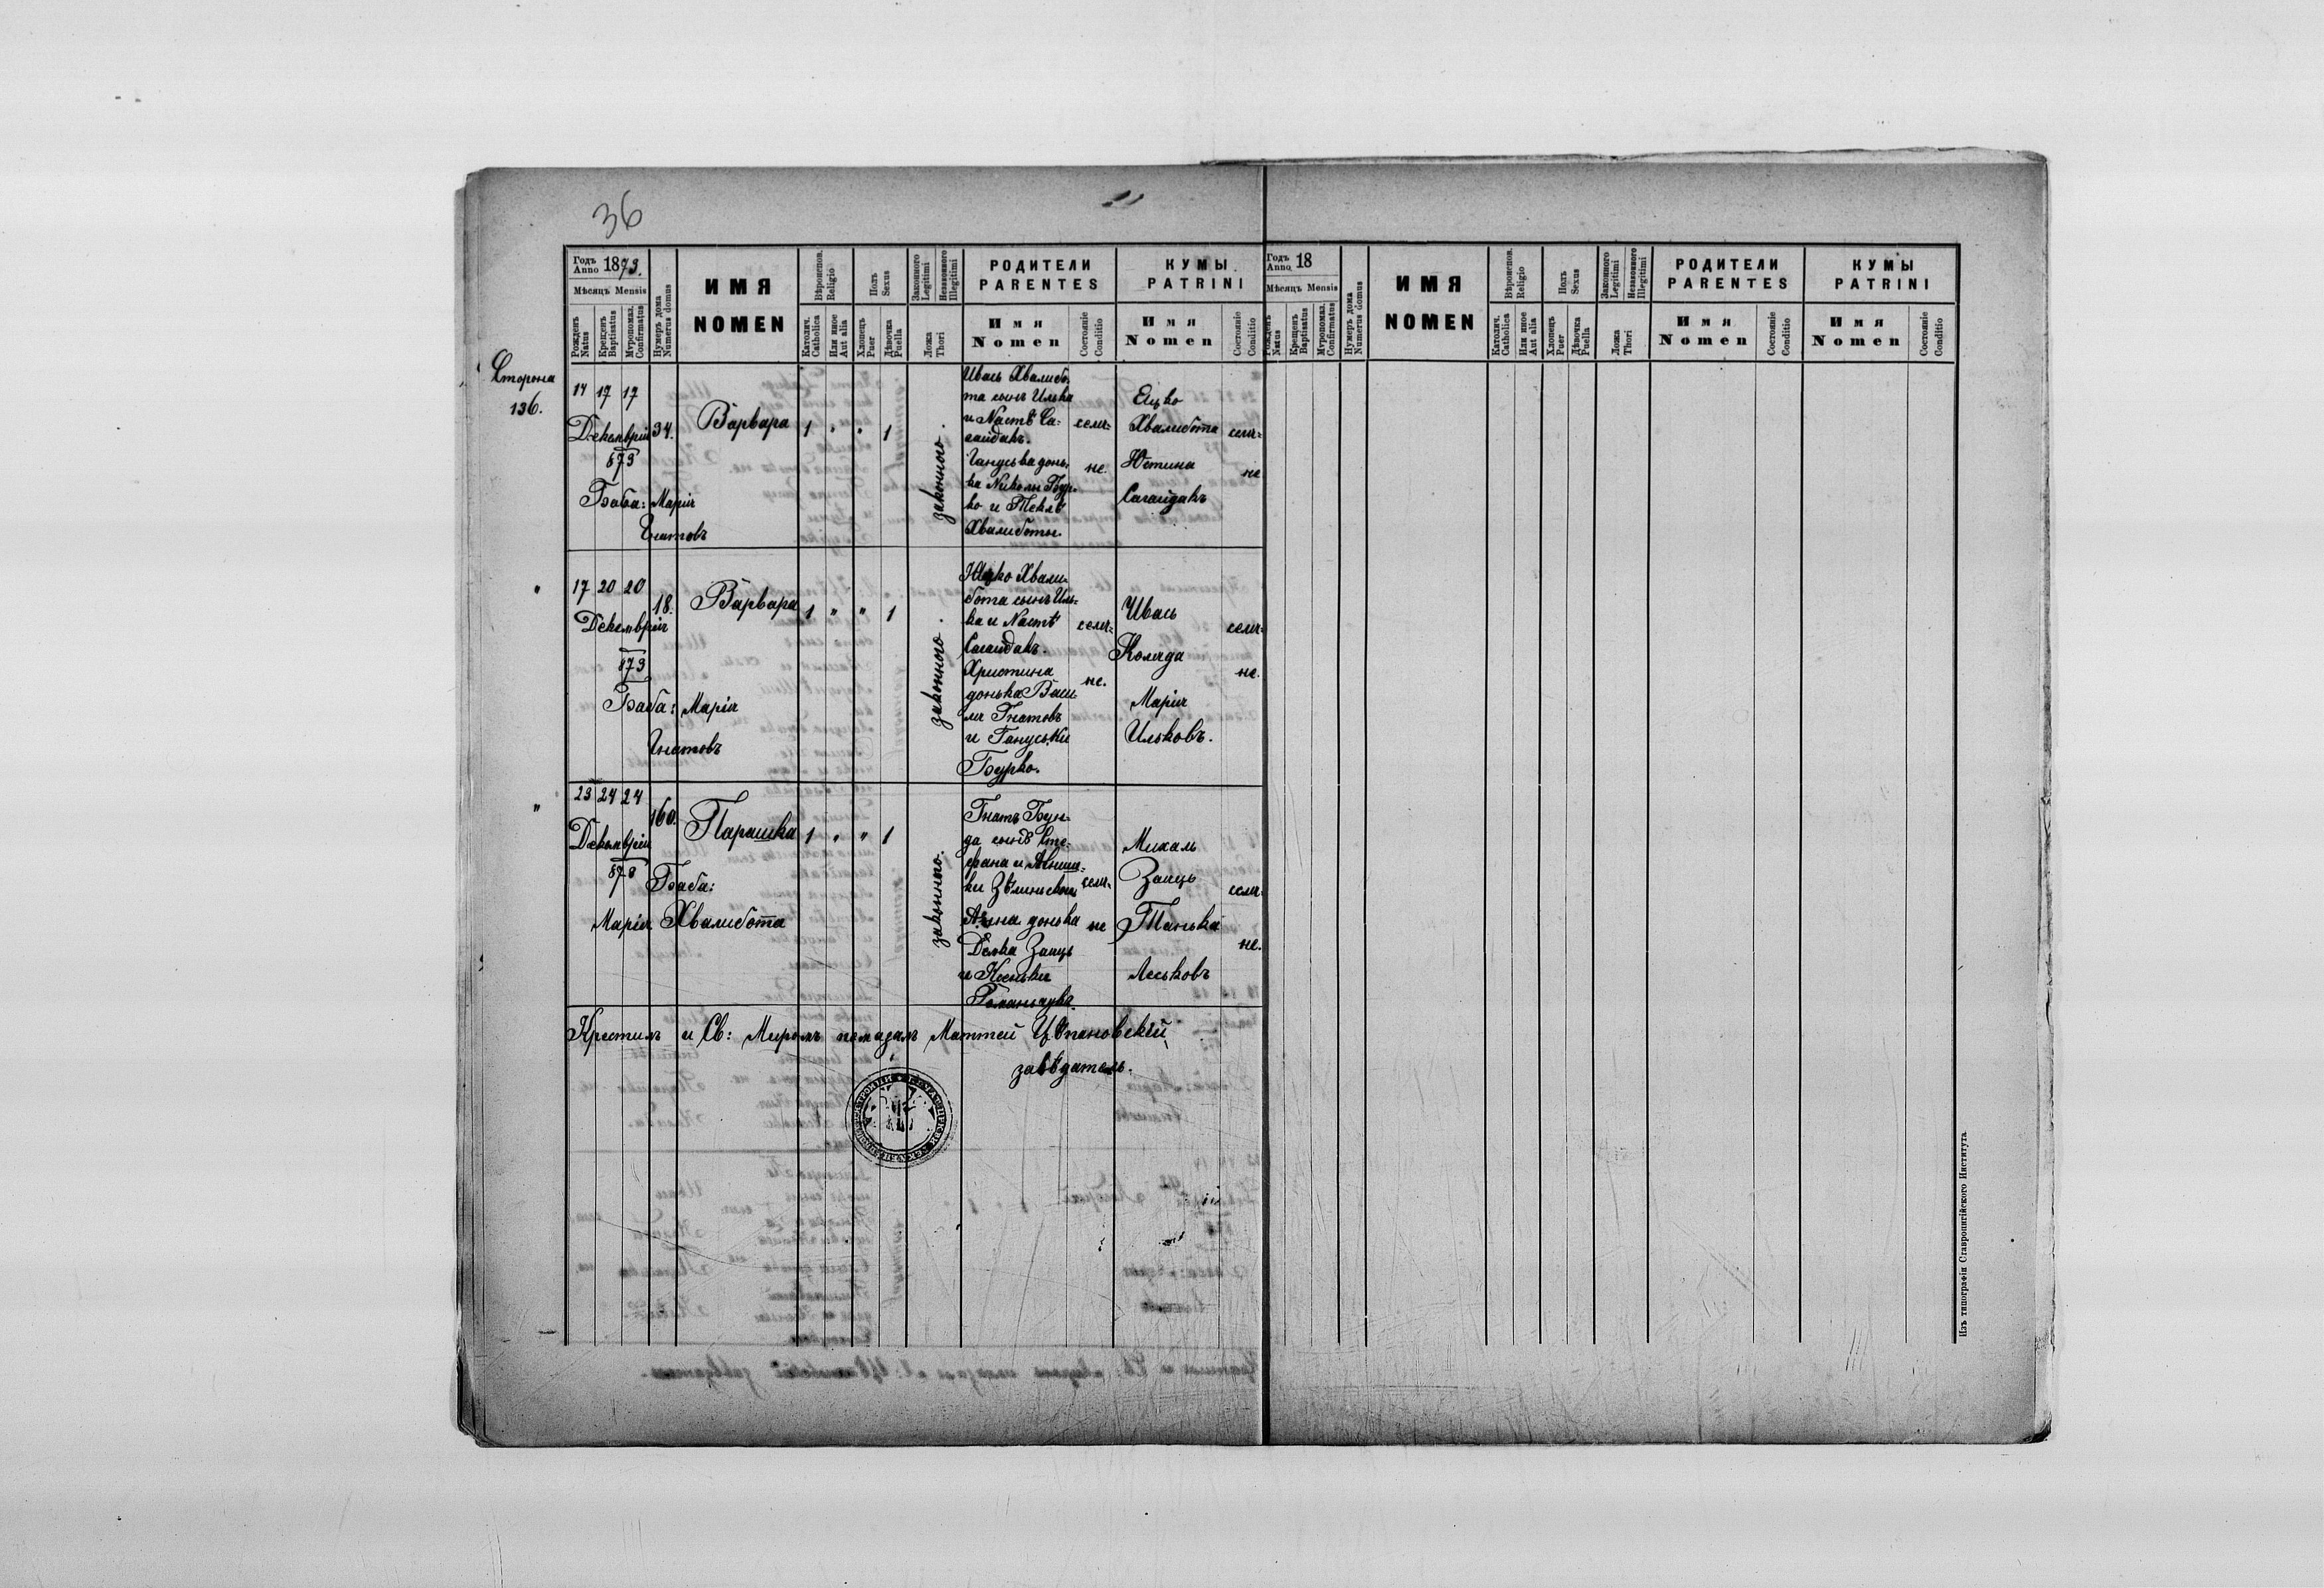 36
Годъ Anno 1873.
Мѣсяцъ Mensis
Рожденъ Natus
Крещенъ Baptisatus
Мѵропомаз. Confirmatus
Нумеръ дома Numerus domus
ИМЯ
NOMEN
Вѣроиспов. Religio
Католич. Catholica
Или иное Aut alia
Полъ Sexus
Хлопецъ Puer
Дѣвочка Puella
Законного Legitimi
Незаконного Illegitimi
Ложа Thori
РОДИТЕЛИ
PARENTES
Имя
Nomen
Состояніе Conditio
КУМЫ
PATRINI
Имя
Nomen
Состояніе Conditio
Сторона
136.
14 17 17
Декемврія
873
34.
Варвара
1 " " 1
законного.
Ивась Хвалибо-
та сынъ Илька
и Настѣ Са-
гайдакъ.
Гануська донь
ка Николы Бур-
ко и Теклѣ
Хвалиботы.
селя-
не.
Ецко
Хвалибота
Юстина
Сагайдакъ
селя-
не
Баба: Марія
Гнатовъ
"
17 20 20
Декемврія
873
18.
Варвара
1 " " 1
законного.
Юцко Хвали-
бота сынъ Иль-
ка и Настѣ
Сагайдакъ.
Христина
донька Васи-
ля Гнатовъ
и Гануськи
Бурко.
селя-
не.
Ивась
Коляда
Марія
Ильковъ.
селя-
не.
Баба: Марія
Гнатовъ
"
23 24 24
Декемврія
873
160.
Парашка
1 " " 1
законного.
Гнатъ Бун-
да сынъ Сте-
фана и
ки
Анна донька
Демка Заяць
и Ксеньки
селя-
не
Михаль
Заяць
Танька
Леськовъ
селя-
не.
Баба:
Марія Хвалибота
Крестилъ и Св: Миромъ помазалъ Маттей Цѣпановскій
завѣдатель.
Годъ Anno 18
Мѣсяцъ Mensis
Рожденъ Natus
Крещенъ Baptisatus
Мѵропомаз. Confirmatus
Нумеръ дома Numerus domus
ИМЯ
NOMEN
Вѣроиспов. Religio
Католич. Catholica
Или иное Aut alia
Полъ Sexus
Хлопецъ Puer
Дѣвочка Puella
Законного Legitimi
Незаконного Illegitimi
Ложа Thori
РОДИТЕЛИ
PARENTES
Имя
Nomen
Состояніе Conditio
КУМЫ
PATRINI
Имя
Nomen
Состояніе Conditio
Изъ типографіи Ставропигійского Института